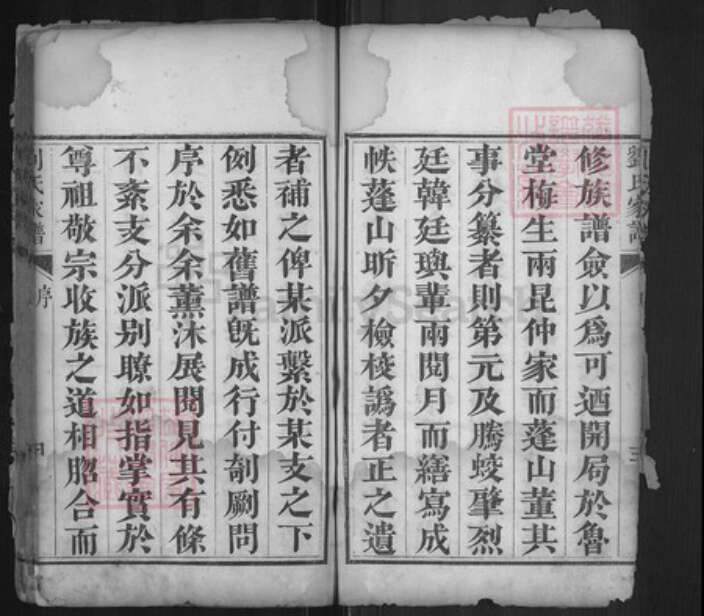 劉氏家譜
修族譜僉以爲可迺開局於魯
堂梅生兩昆仲家而蓬山董其
事分纂者則第元及騰蛟肇烈
廷韓廷璵輩兩閱月而繕寫成
帙蓬山昕夕檢校譌者正之遺
者補之俾某派繫於某支之下
例悉如舊譜旣成行付剞劂問
序於余余薰沐展閱見其有條
不紊支分派別瞭如指掌實於
尊祖敬宗收族之道相脗合而
劉氏家譜
序
四
FamilySearch